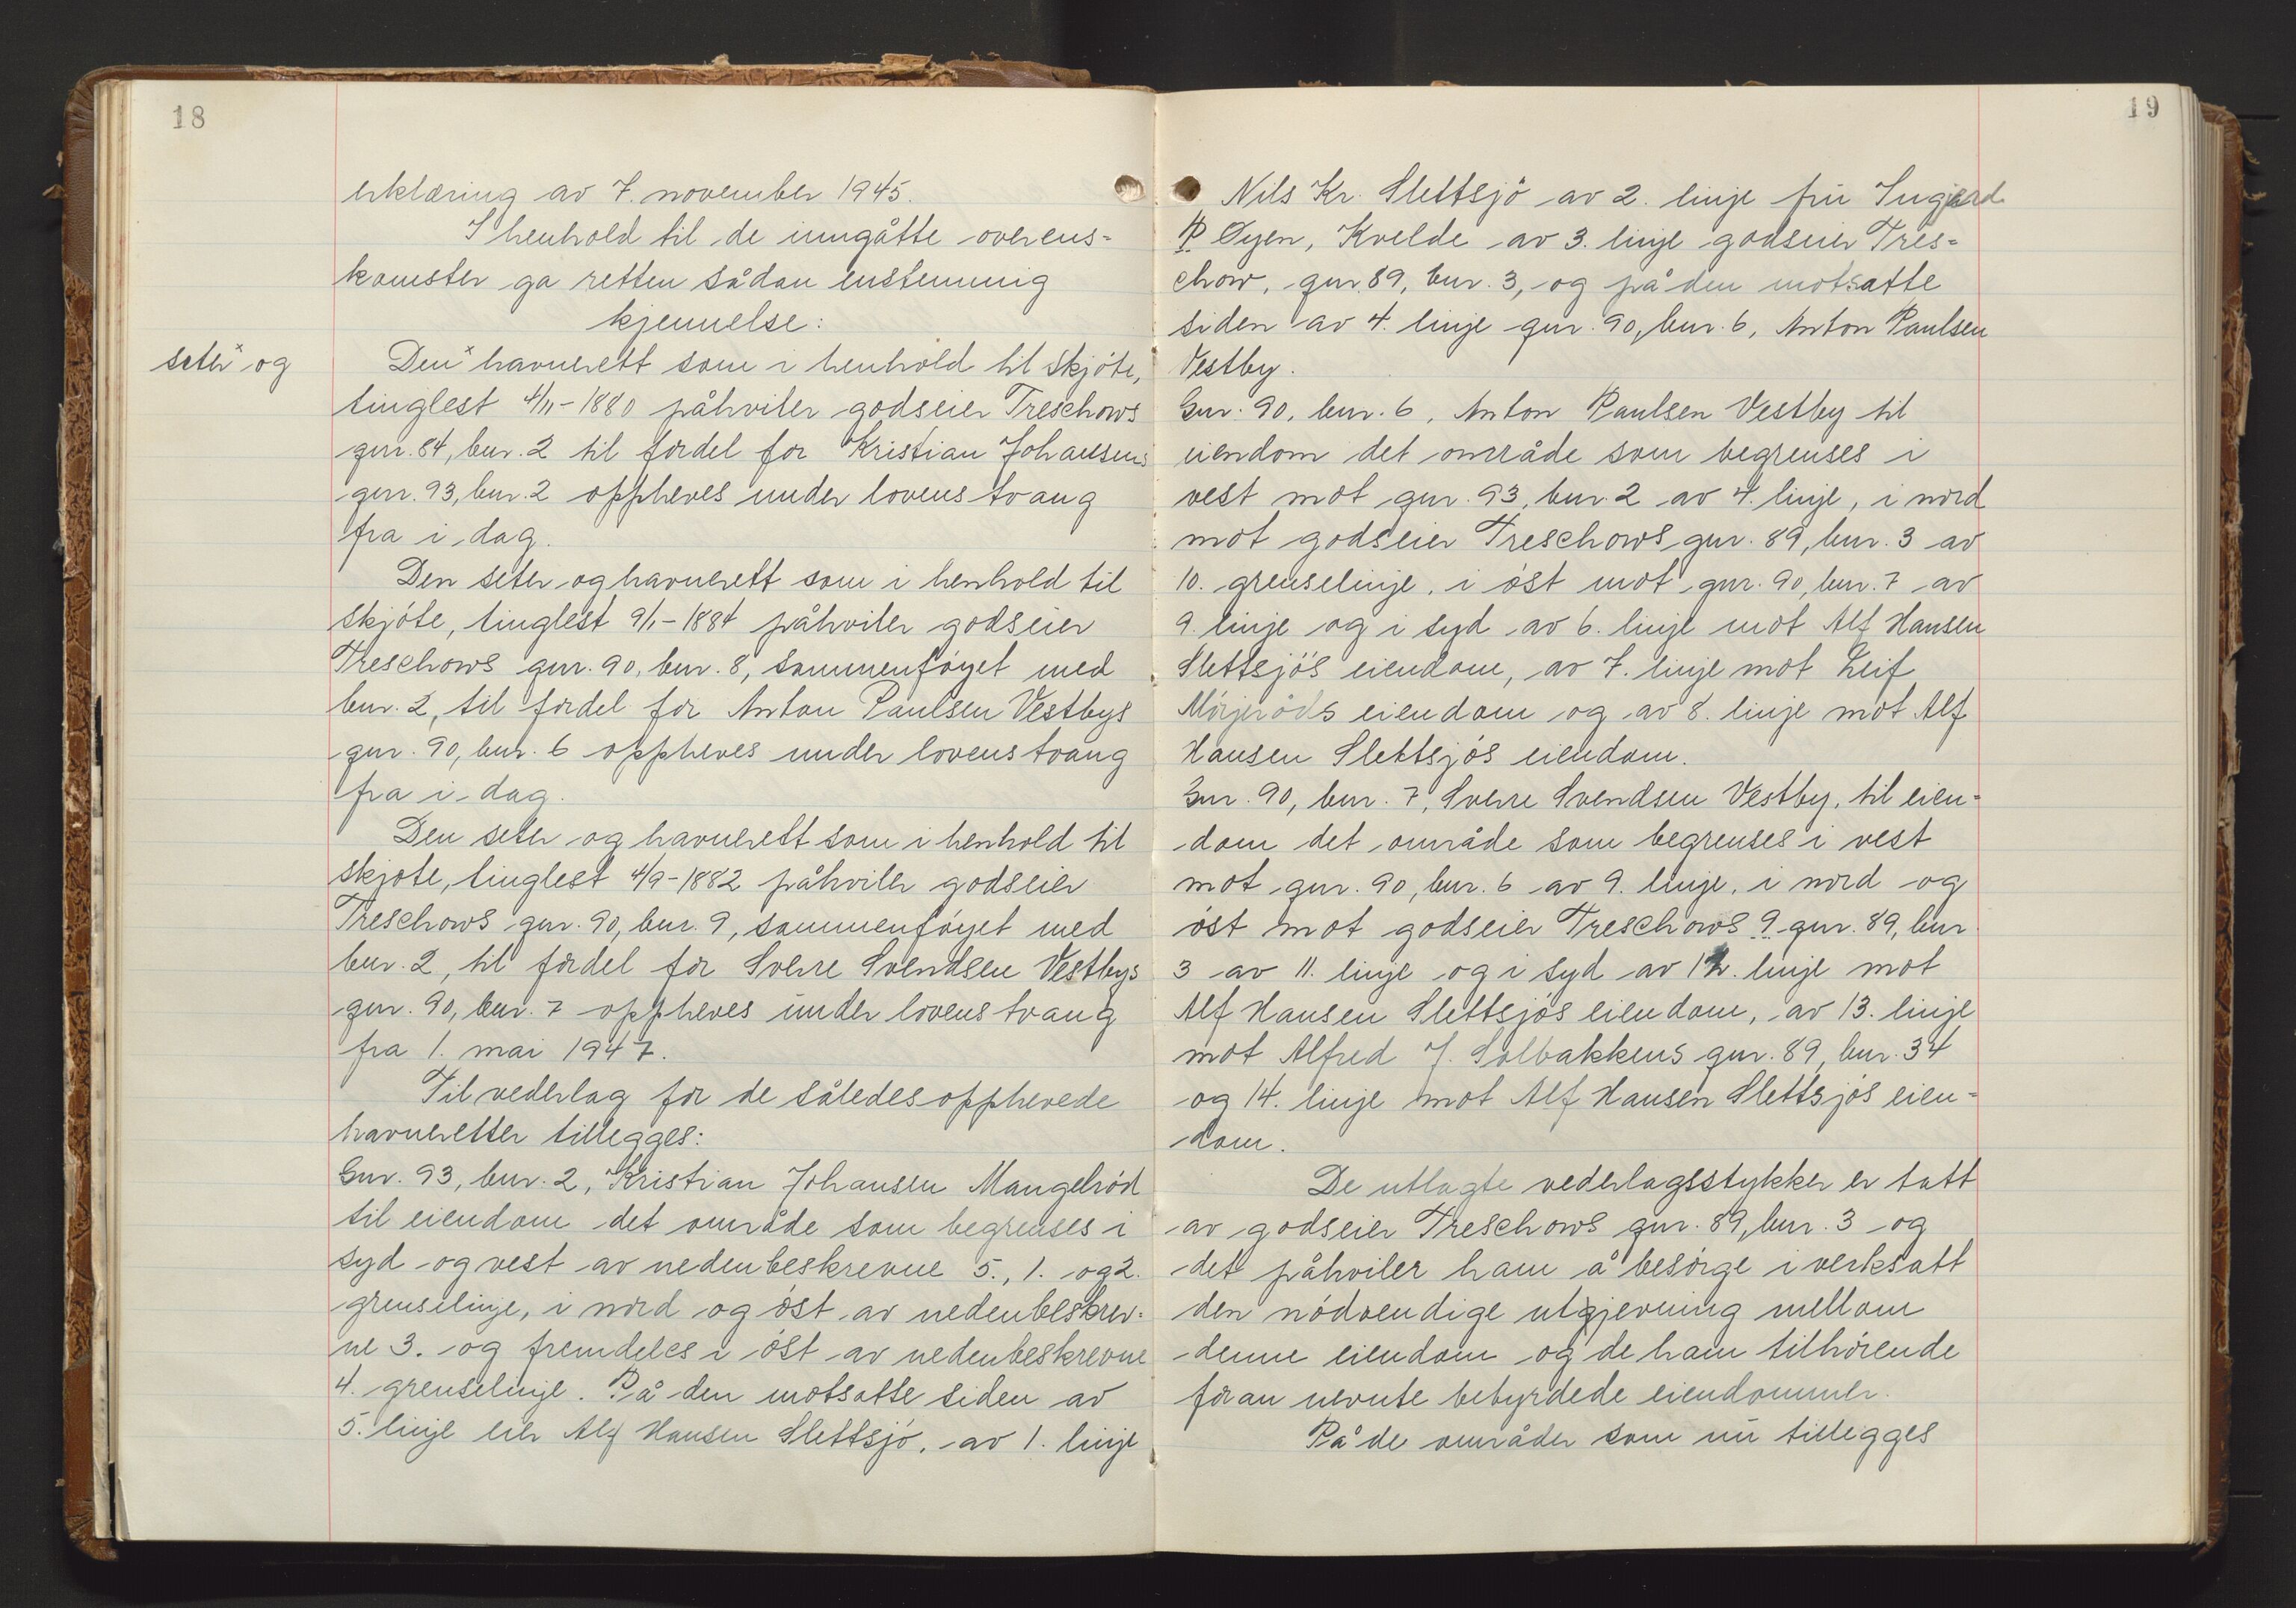 18
erklæring av 7. november 1945.
I henhold til de inngåtte overens-
komster ga retten sådan enstemmig
kjennelse:
seter x og
Den x havnerett som i henhold til skjöte,
tinglest 4/11-1880 påhviler godseier Treschows
gnr. 84, bnr. 2 til fordel for Kristian Johansens
gnr. 93, bnr. 2 oppheves under lovens tvang
fra i dag.
Den seter og havnerett som i henhold til
skjöte, tinglest 9/1-1884 påhviler godseier
Treschows gnr. 90, bnr. 8, sammenföyet med
bnr. 2, til fordel for Anton Paulsen Vestbys
gnr. 90, bnr. 6 oppheves under lovens tvang
fra i dag.
Den seter og havnerett som i henhold til
skjöte, tinglest 4/9-1882 påhviler godseier
Treschows gnr. 90, bnr. 9, sammenföyet med
bnr. 2, til fordel for Sverre Svendsen Vestbys
gnr. 90, bnr. 7 oppheves under lovens tvang
fra 1. mai 1947.
Til vederlag for de således opphevede
havneretter tillegges:
Gnr. 93, bnr. 2, Kristian Johansen Mangelröd
til eiendom det område som begrenses i
syd og vest av nedenbeskrevne 5., 1. og 2.
grenselinje, i nord og öst av nedenbeskrev-
ne 3. og fremdeles i öst av nedenbeskrevne
4. grenselinje. På den motsatte siden av
5. linje eier Alf Hansen Slettsjö, av 1. linje
19
Nils Kr. Slettsjö av 2. linje fru Ingjerd
P Øyen, Kvelde av 3. linje godseier Tres-
chow, gnr. 89, bnr. 3, og på den motsatte
siden av 4. linje gnr. 90, bnr. 6, Anton Paulsen
Vestby.
Gnr. 90, bnr. 6, Anton Paulsen Vestby til
eiendom det område som begrenses i
vest mot gnr. 93, bnr. 2 av 4. linje, i nord
mot godseier Treschows gnr. 89, bnr. 3 av
10. grenselinje, i öst mot gnr. 90, bnr. 7 av
9. linje og i syd av 6. linje mot Alf Hansen
Slettsjö's eiendom, av 7. linje mot Leif
Mörjeröds eiendom og av 8. linje mot Alf
Hansen Slettsjös eiendom.
Gnr. 90, bnr. 7, Sverre Svendsen Vestby, til eien-
dom det område som begrenses i vest
mot gnr. 90, bnr. 6 av 9. linje, i nord og
öst mot godseier Treschows 9 gnr. 89, bnr.
3 av 11. linje og i syd av 12. linje mot
Alf Hansen Slettsjös eiendom, av 13. linje
mot Alfred J. Solbakkens gnr. 89, bnr. 34
og 14. linje mot Alf Hansen Slettsjös eien-
dom.
De utlagte vederlagsstykker er tatt
av godseier Treschows gnr. 89, bnr. 3 og
det påhviler ham å besörge iverksatt
den nödvendige utgjevning mellom
denne eiendom og de ham tilhörende
foran nevnte bebyrdede eiendommer.
På de områder som nu tillegges